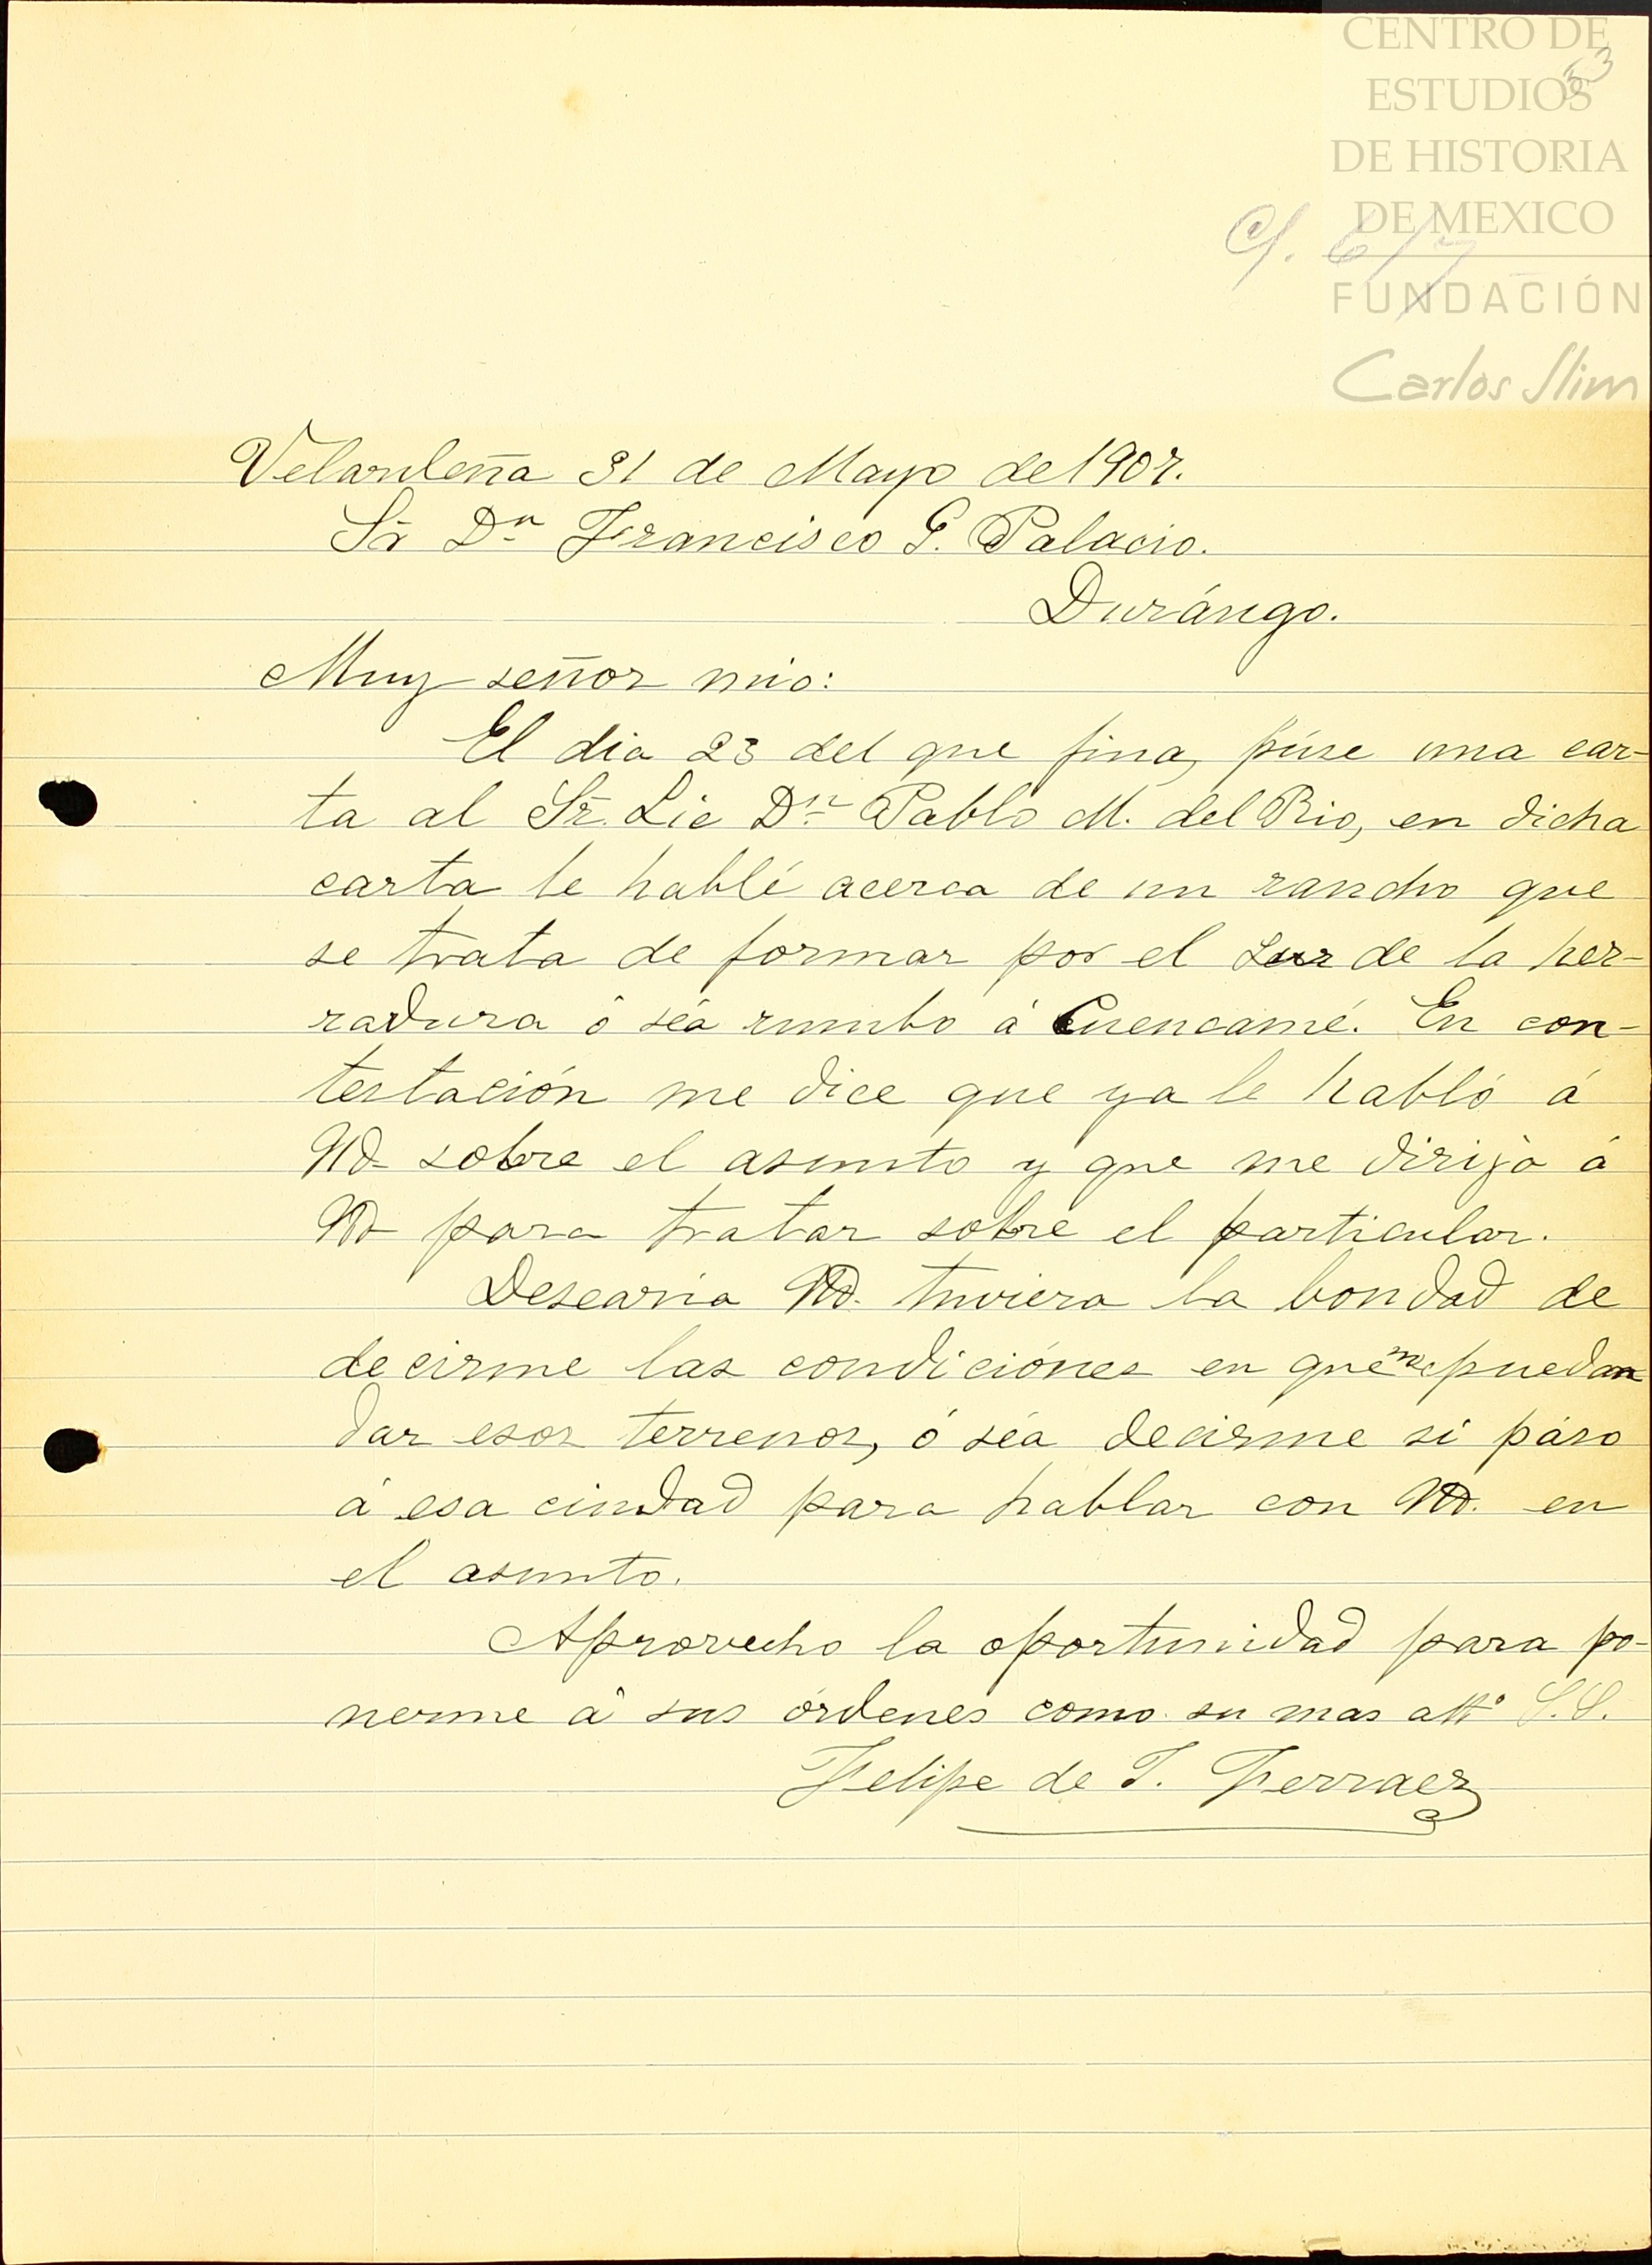 CENTRO DE
ESTUDIOS
DE HISTORIA
DE MEXICO
FUNDACIÓN
Carlos Slim
53
C/. 6/7
Velardeña 31 de Mayo de 1907.
Sr Dn Francisco G. Palacio.
Durángo.
Muy señor mio:
El dia 23 del que fina, púse una car-
ta al Sr. Lic Dn Pablo M. del Rio, en dicha
carta le hablé acerca de un rancho que
se trata de formar por el Sur de la her-
radura ó séa rumbo á Cuencamé. En con-
testación me dice que ya le habló á
Ud sobre el asunto y que me dirija á
Ud para tratar sobre el particular.
Desearia Ud. tuviera la bondad de
decirme las condiciónes en que me puedan
dar esos terrenos, ó séa decirme si páso
á esa ciudad para hablar con Ud. en
el asunto.
Aprovecho la oportunidad para po-
nerme á sus órdenes como su mas atto S.S.
Felipe de J. Ferraez